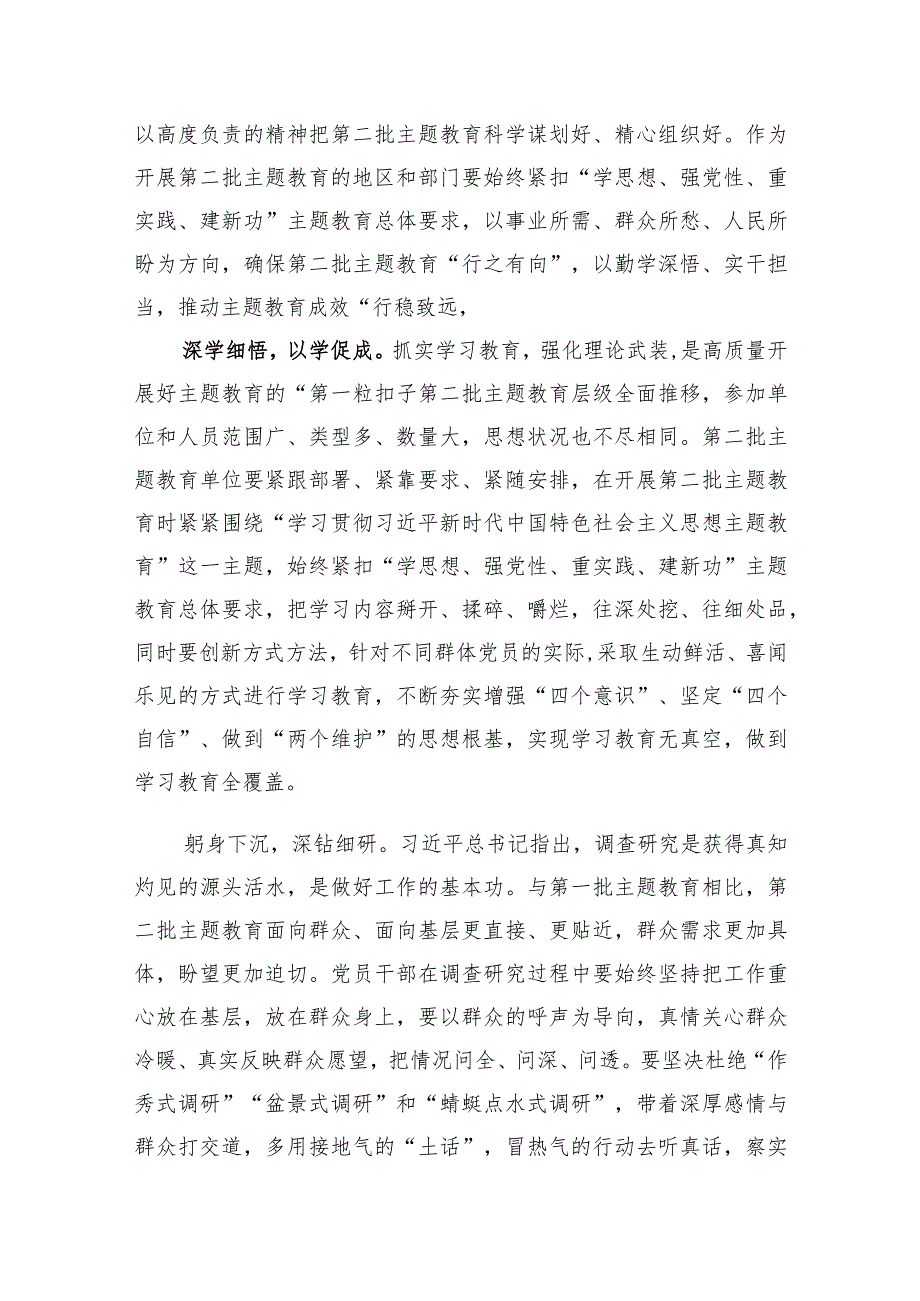 以高度负责的精神把第二批主题教育科学谋划好、精心组织好。作为
开展第二批主题教育的地区和部门要始终紧扣“学思想、强党性、重
实践、建新功”主题教育总体要求，以事业所需、群众所愁、人民所
盼为方向，确保第二批主题教育“行之有向”，以勤学深悟、实干担
当，推动主题教育成效“行稳致远，
深学细悟，以学促成。抓实学习教育，强化理论武装,是高质量开
展好主题教育的“第一粒扣子第二批主题教育层级全面推移，参加单
位和人员范围广、类型多、数量大，思想状况也不尽相同。第二批主
题教育单位要紧跟部署、紧靠要求、紧随安排，在开展第二批主题教
育时紧紧围绕“学习贯彻习近平新时代中国特色社会主义思想主题教
育”这一主题，始终紧扣“学思想、强党性、重实践、建新功”主题
教育总体要求，把学习内容掰开、揉碎、嚼烂，往深处挖、往细处品，
同时要创新方式方法，针对不同群体党员的实际,采取生动鲜活、喜闻
乐见的方式进行学习教育，不断夯实增强“四个意识”、坚定“四个
自信”、做到“两个维护”的思想根基，实现学习教育无真空，做到
学习教育全覆盖。
躬身下沉，深钻细研。习近平总书记指出，调查研究是获得真知
灼见的源头活水，是做好工作的基本功。与第一批主题教育相比，第
二批主题教育面向群众、面向基层更直接、更贴近，群众需求更加具
体，盼望更加迫切。党员干部在调查研究过程中要始终坚持把工作重
心放在基层，放在群众身上，要以群众的呼声为导向，真情关心群众
冷暖、真实反映群众愿望，把情况问全、问深、问透。要坚决杜绝“作
秀式调研”“盆景式调研”和“蜻蜓点水式调研”，带着深厚感情与
群众打交道，多用接地气的“土话”，冒热气的行动去听真话，察实